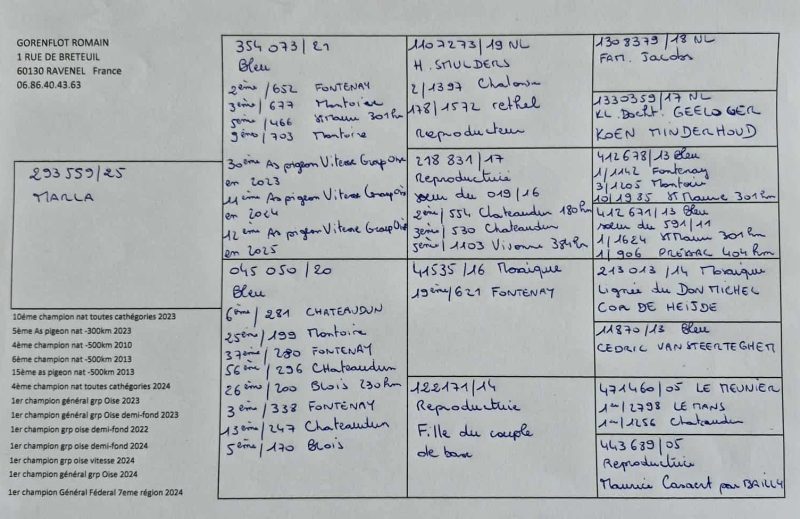 GORENFLOT ROMAIN
1 RUE DE BRETEUIL
60130 RAVENEL France
06.86.40.43.63
293 559/25
MARLA
10ème champion nat toutes cathégories 2023
5ème As pigeon nat -300km 2023
4ème champion nat -500km 2010
6ème champion nat -500km 2013
15ème as pigeon nat -500km 2013
4ème champion nat toutes cathégories 2024
1er champion général grp Oise 2023
1er champion général grp Oise demi-fond 2023
1er champion grp oise demi-fond 2022
1er champion grp oise demi-fond 2024
1er champion grp oise vitesse 2024
1er champion général grp Oise 2024
1er champion Général Fédéral 7eme région 2024
354 073/21
Bleu
2ème/652 FONTENAY
3ème/677 Montoire
5ème/466 St Maur 301 km
9ème/703 Montoire
30ème As pigeon Vitesse Group Oise
en 2023
11ème As pigeon Vitesse Group Oise
en 2024
12ème As pigeon Vitesse Group Oise
en 2025
045 050/20
Bleu
6ème/281 CHATEAUDUN
25ème/199 Montoire
37ème/280 FONTENAY
56ème/296 Chateaudun
26ème/200 BLOIS 230 km
3ème/338 FONTENAY
13ème/247 Chateaudun
5ème/170 Blois
1107273/19 NL
H. SMULDERS
2/1397 Chalons
178/1572 rethel
Reproducteur
218 831/17
Reproductrice
soeur du 019/16
2ème/554 Chateaudun 180 km
3ème/530 Chateaudun
5ème/1103 Vivonne 384 km
41535/16 Mosaique
19ème/621 FONTENAY
122171/14
Reproductrice
Fille du couple
de base
1308379/18 NL
FAM. Jacobs
1330359/17 NL
KL. Docht. GEELOGER
KOEN MINDERHOUD
412678/13 Bleu
1/1142 Fontenay
3/1205 Montoire
10/1985 St Maurice 301 km
412 671/13 Bleu
soeur du 591/11
1/1624 St Maur 301 km
1/906 PRESSAC 404 km
213 013/14 Mosaique
Lignée du DON MICHEL
COR DE HEIJDE
11870/13 Bleu
CEDRIC VANSTEERTEGHEM
471460/05 LE MEUNIER
1er/2798 LE MANS
1er/1256 Chateaudun
443 689/05
Reproductrice
Maurice Casaert par BAILLY